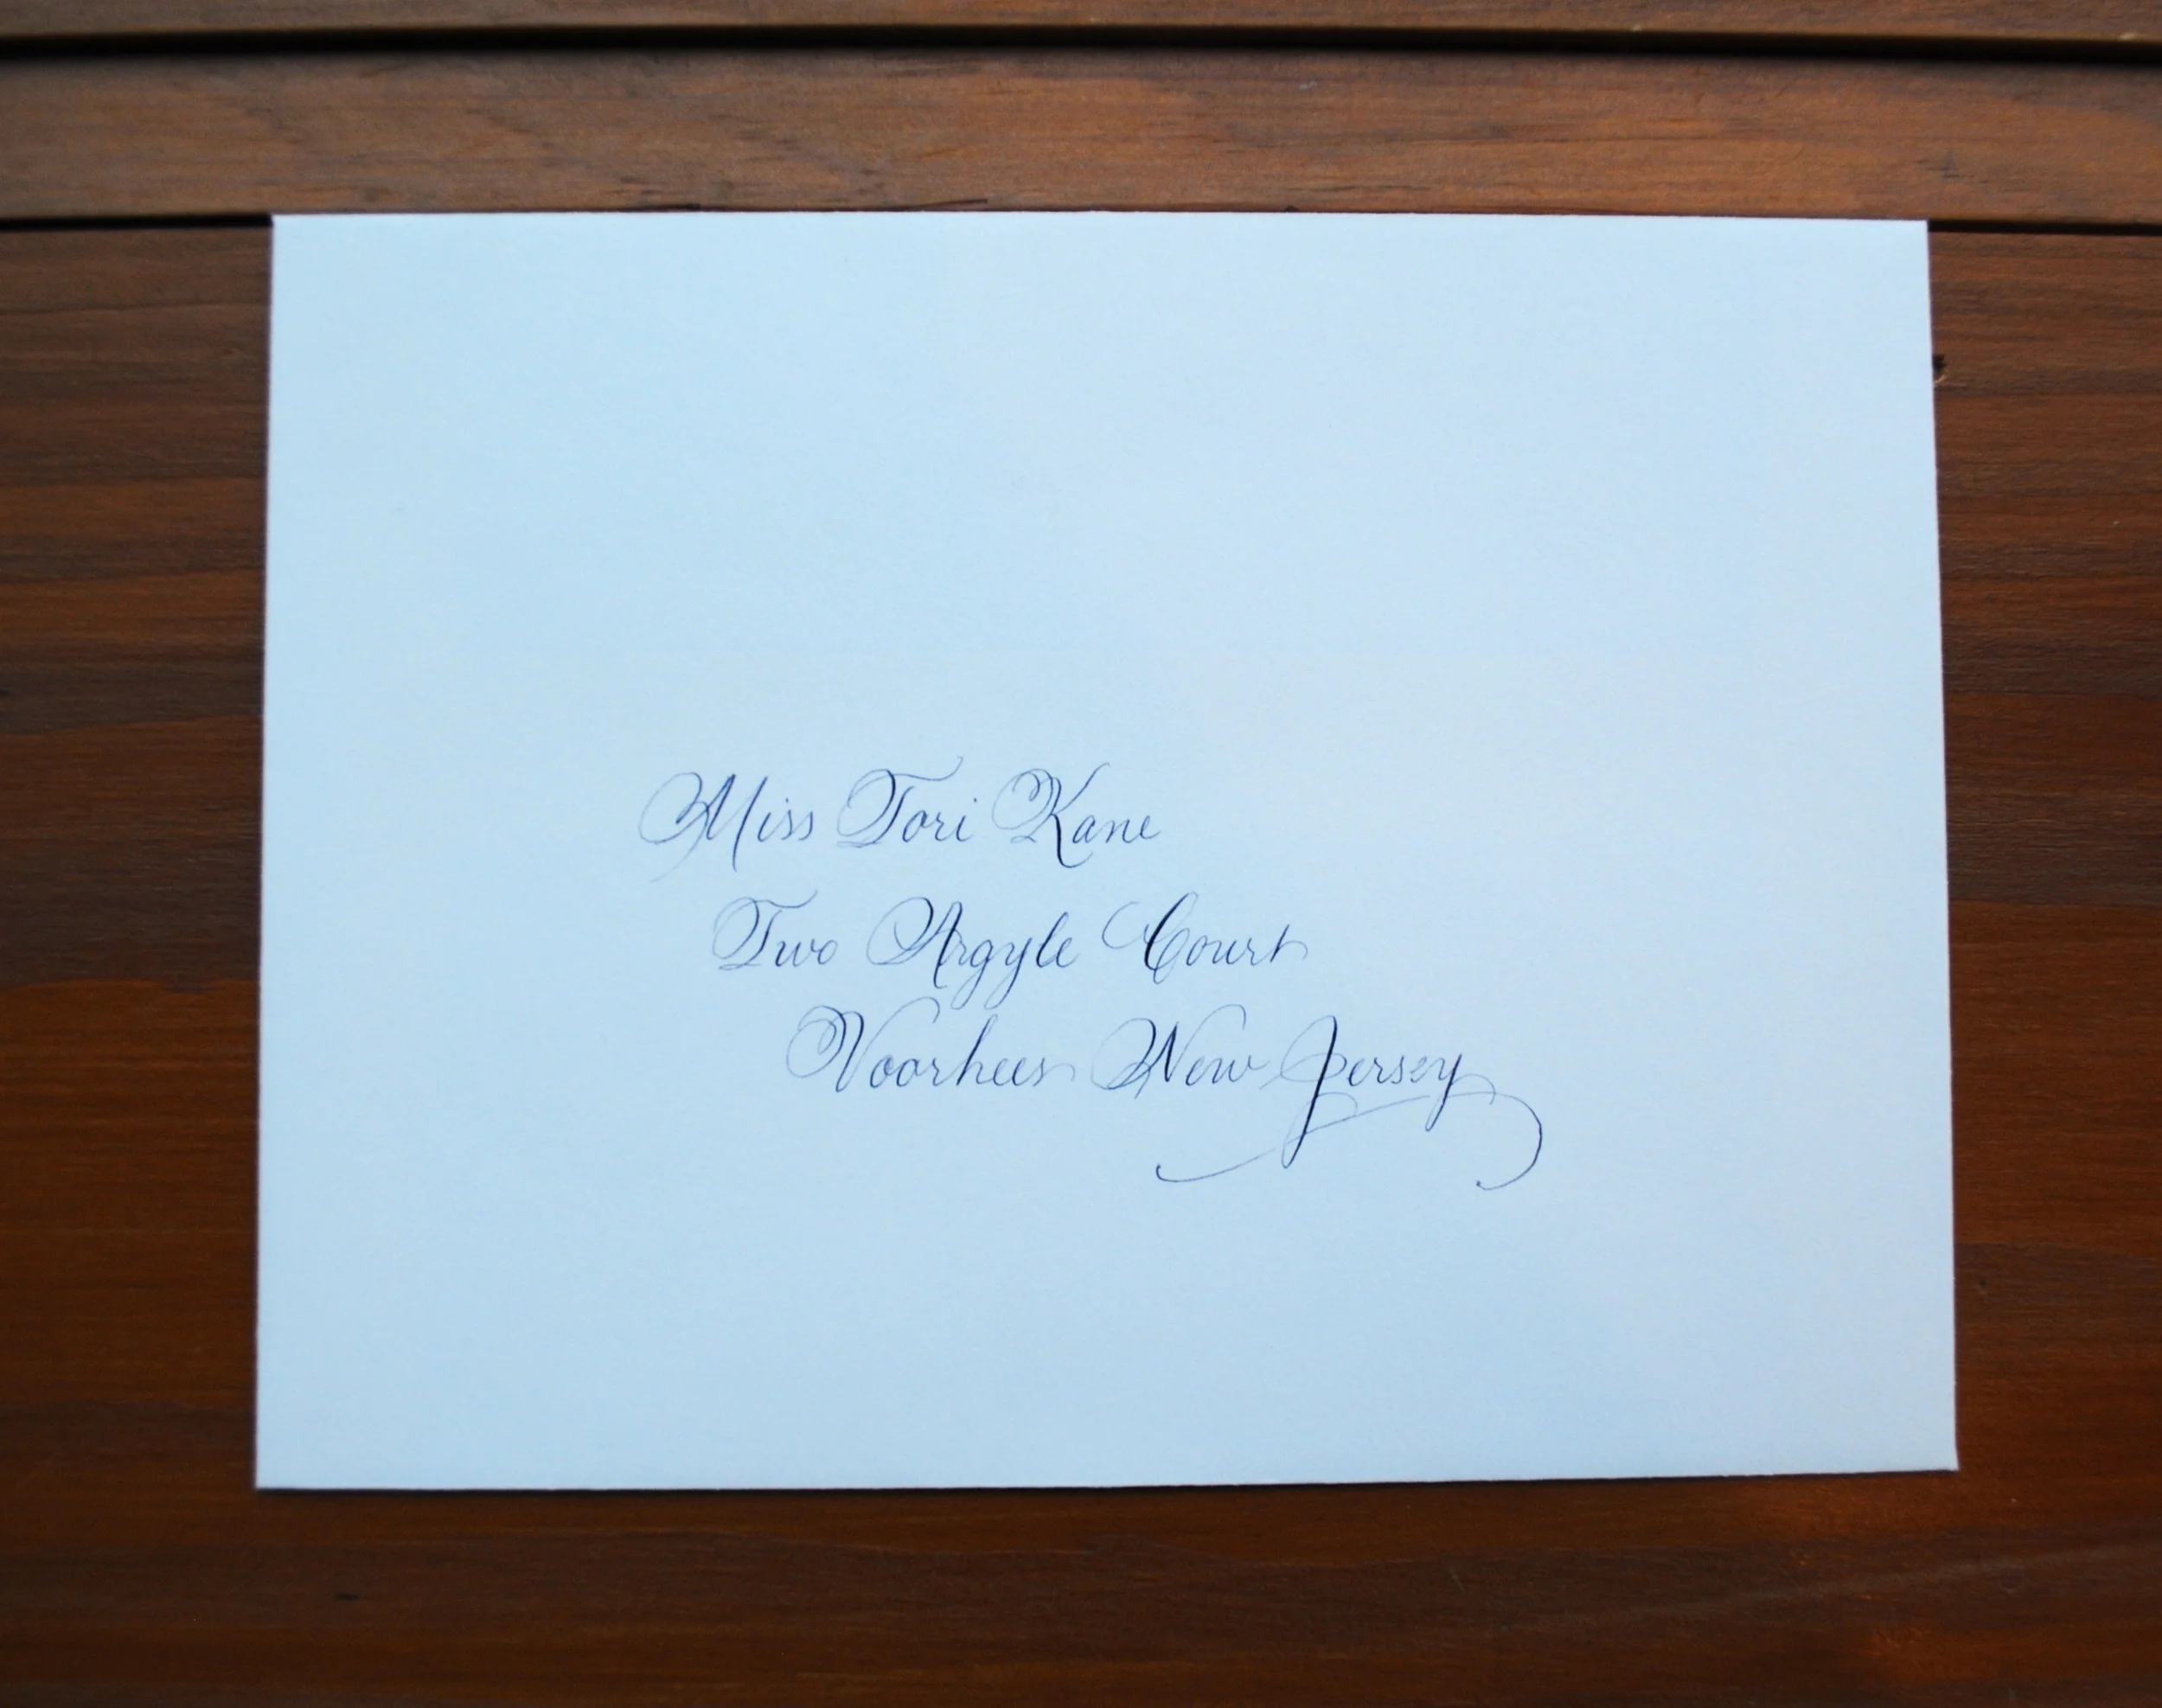 Miss Tori Kane
Two Argyle Court
Voorhees New Jersey